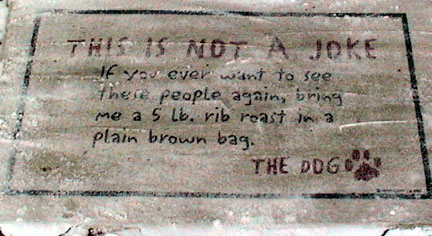 THIS IS NOT A JOKE
If you ever want to see
these people again, bring
me a 5 lb. rib roast in a
plain brown bag.
THE DOG